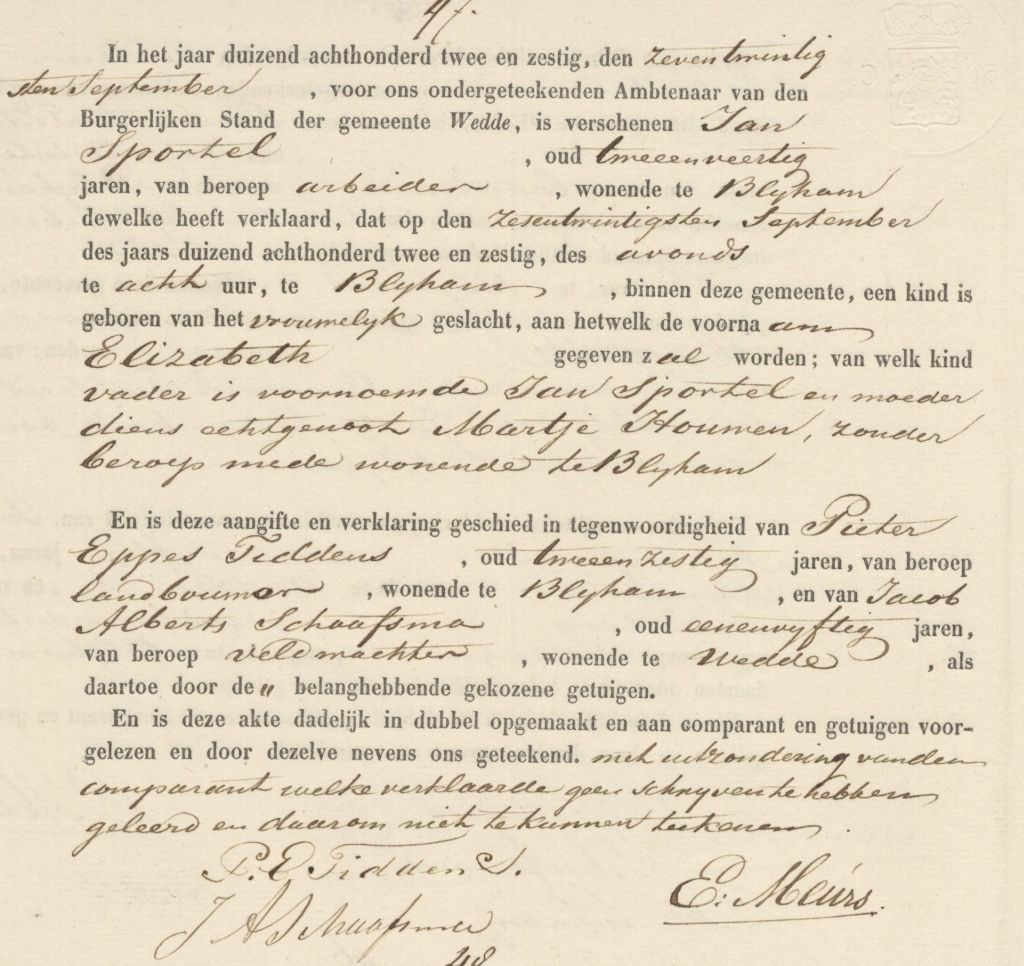 47.
In het jaar duizend achthonderd twee en zestig, den zeventwintig
sten September , voor ons ondergeteekenden Ambtenaar van den
Burgerlijken Stand der gemeente Wedde, is verschenen Jan
Sportel , oud tweeenveertig
jaren, van beroep arbeider , wonende te Blyham
dewelke heeft verklaard, dat op den zesentwintigsten September
des jaars duizend achthonderd twee en zestig, des avonds
te acht uur, te Blyham , binnen deze gemeente, een kind is
geboren van het vrouwelyk geslacht, aan hetwelk de voorna am
Elizabeth gegeven z al worden; van welk kind
vader is voornoemde Jan Sportel en moeder
diens echtgenoot Martje Houwen, zonder
beroep mede wonende te Blyham
En is deze aangifte en verklaring geschied in tegenwoordigheid van Pieter
Eppes Tiddens , oud tweeenzestig jaren, van beroep
landbouwer , wonende te Blyham , en van Jacob
Alberts Schaafsma , oud eenenvyftig jaren,
van beroep veldwachter , wonende te Wedde , als
daartoe door de " belanghebbende gekozene getuigen.
En is deze akte dadelijk in dubbel opgemaakt en aan comparant en getuigen voor-
gelezen en door dezelve nevens ons geteekend. met uitzondering van den
comparant welke verklaarde geen schryven te hebben
geleerd en daarom niet te kunnen teekenen .
P. E Tiddens.
E: Meurs.
J A Schaafsma
48